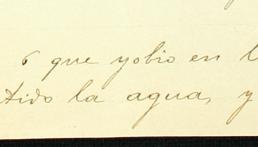 6 que yobio en l
tido la agua, y